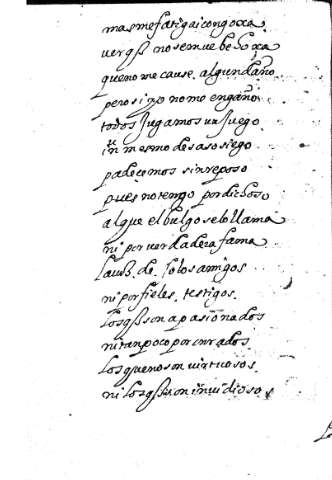 mas me fatiga i congoxa
ver q̃ no se muebe hoxa
que no me cause algun daño
pero si yo no me engaño
todos jugamos un juego
i ũn mesmo desasosiego
padecemos sin reposo
pues no tengo por dichoso
al que el bulgo se lo llama
ni por verdadera fama
la voz de solos amigos
ni por fieles testigos
los q̃ son apasionados
ni tanpoco por onrados
los que no son virtuosos
ni los q̃ son invidiosos